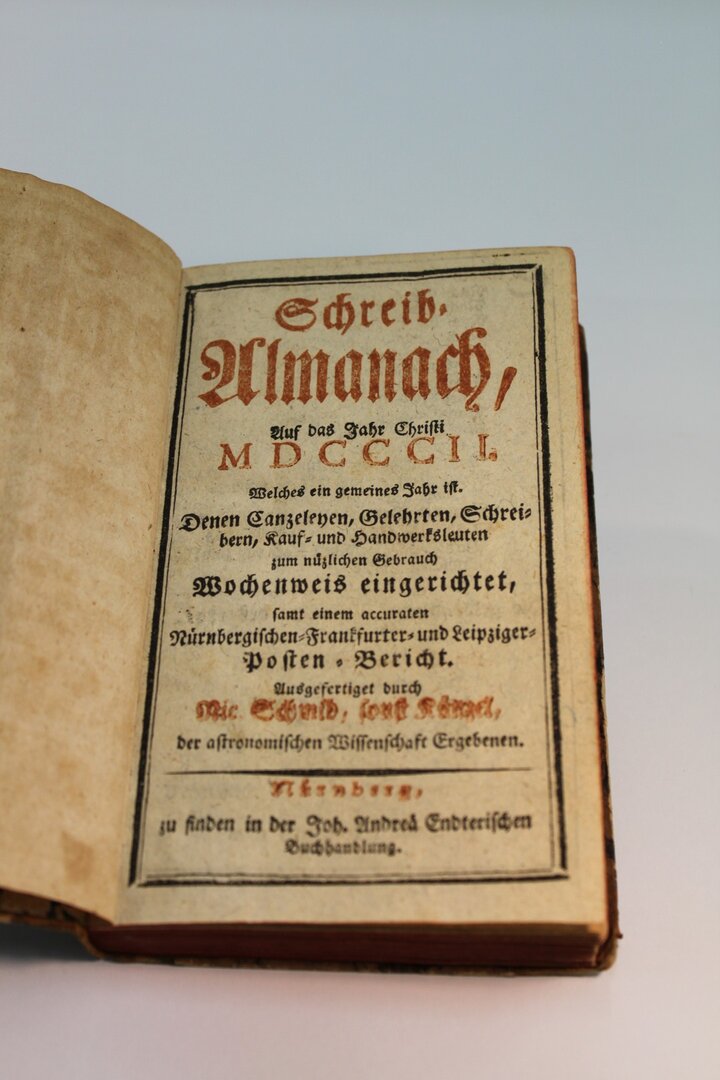 Schreib-
Almanach,
Auf das Jahr Christi
MDCCCII.
Welches ein gemeines Jahr ist.
Denen Canzeleyen, Gelehrten, Schrei-
bern, Kauf- und Handwerksleuten
zum nüzlichen Gebrauch
Wochenweis eingerichtet,
samt einem accuraten
Nürnbergischen-Frankfurter- und Leipziger-
Posten-Bericht.
Ausgefertiget durch
Nic Schmid, sonst Künzel,
der astronomischen Wissenschaft Ergebenen.
Nürnberg,
zu finden in der Joh. Andreä Endterischen
Buchhandlung.